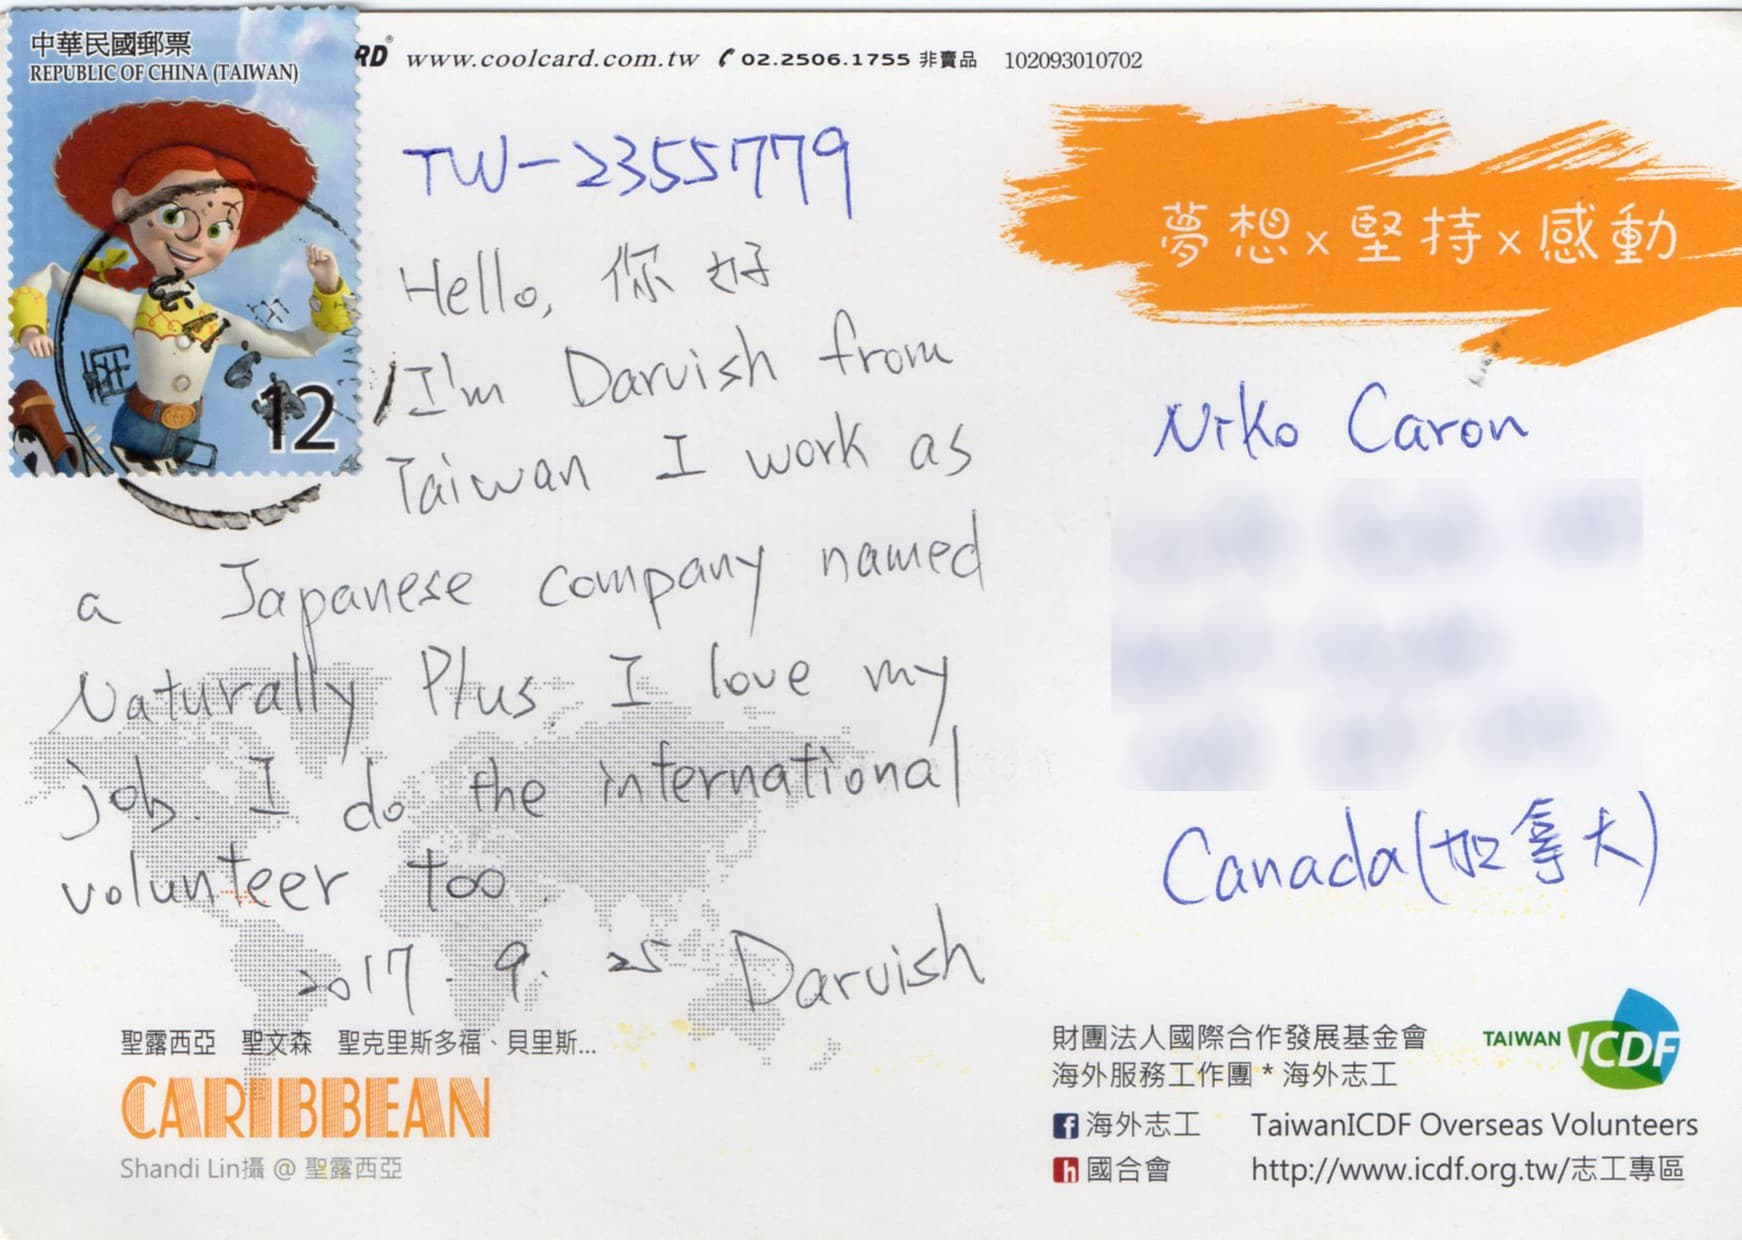 中華民國郵票
REPUBLIC OF CHINA (TAIWAN)
12
RD® www.coolcard.com.tw 02.2506.1755 非賣品 102093010702
TW-2355779
Hello, 你好
I'm Darvish from
Taiwan I work as
a Japanese company named
Naturally Plus. I love my
job. I do the international
volunteer too.
2017. 9. 25 Darvish
聖露西亞 聖文森 聖克里斯多福、貝里斯...
CARIBBEAN
Shandi Lin攝 @ 聖露西亞
夢想x堅持x感動
Niko Caron
Canada(加拿大)
財團法人國際合作發展基金會
海外服務工作團 * 海外志工
TAIWAN ICDF
f 海外志工 TaiwanICDF Overseas Volunteers
h 國合會 http://www.icdf.org.tw/志工專區